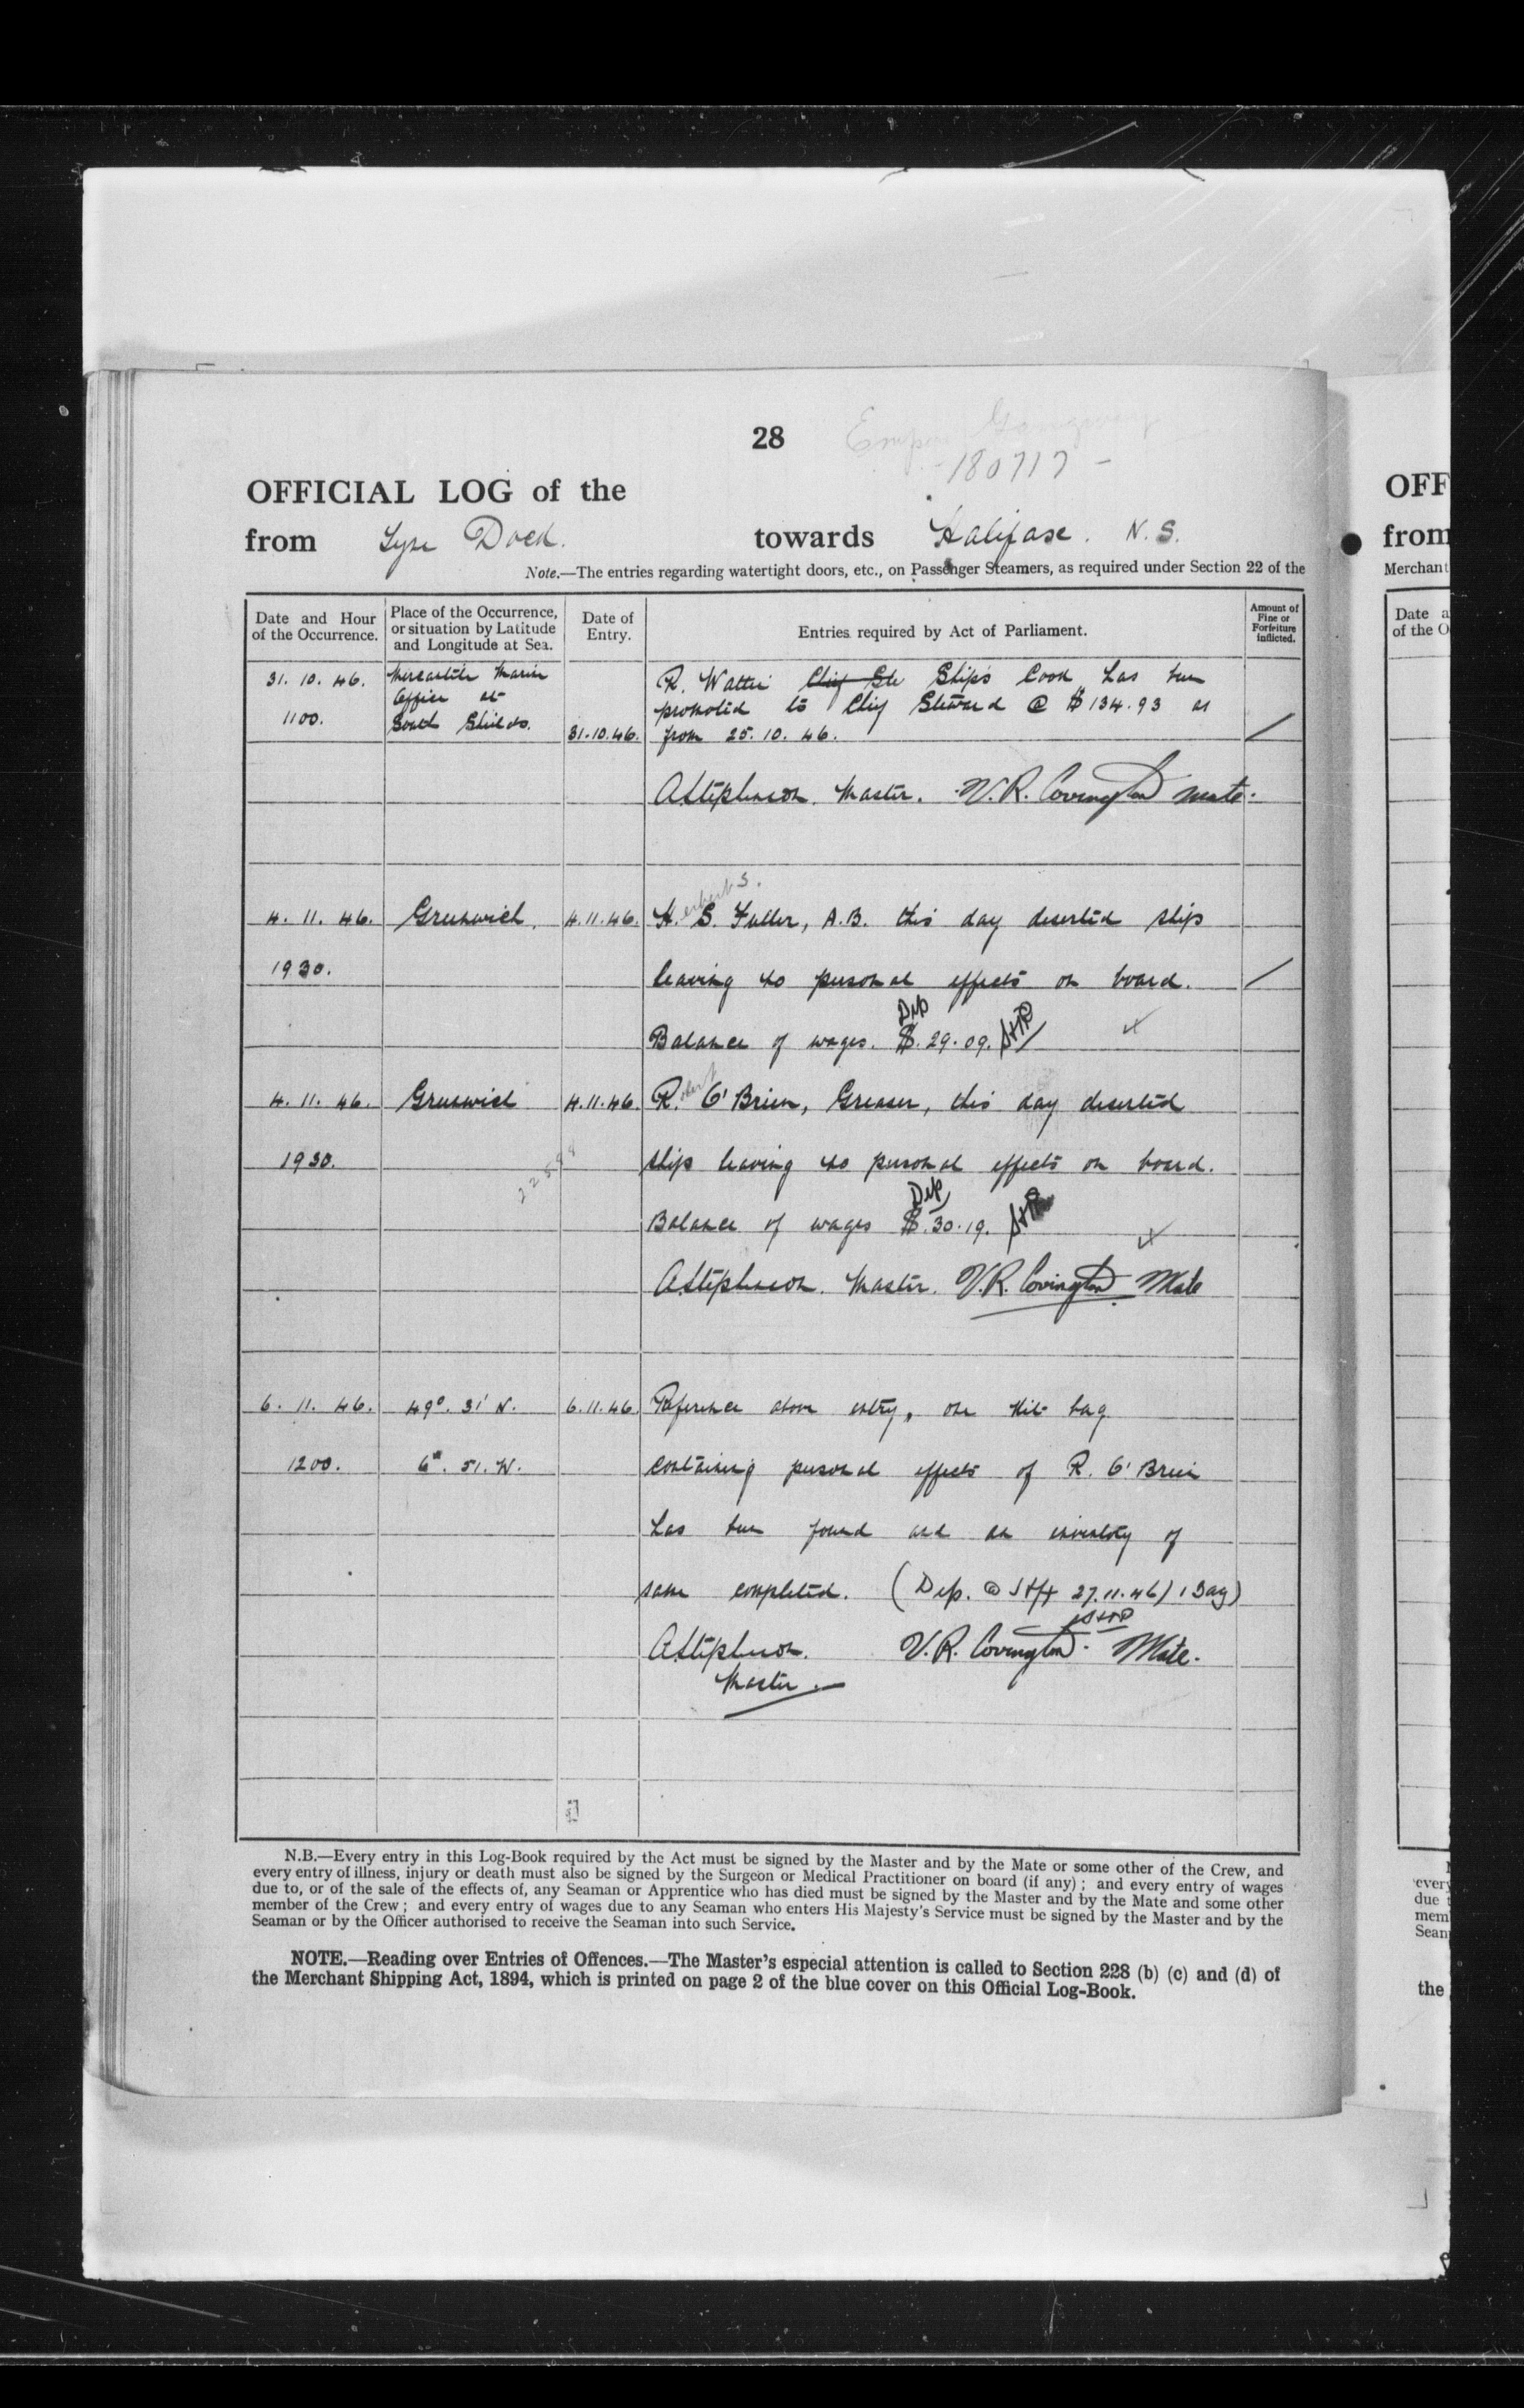 28
Empire Gangway
- 180717 -
OFFICIAL LOG of the
from Tyne Dock. towards Halifax. N.S.
Note.—The entries regarding watertight doors, etc., on Passenger Steamers, as required under Section 22 of the
Date and Hour of the Occurrence.
Place of the Occurrence, or situation by Latitude and Longitude at Sea.
Date of Entry.
Entries required by Act of Parliament.
Amount of Fine or Forfeiture inflicted.
31. 10. 46. Mercantile Marine R. Watter Chief Ste Ships Cook has been
Office at promoted to Chief Steward @ $134.93 as
1100. South Shields. 31.10.46. from 25. 10. 46.
A Stephenson. Master. V. R. Covington Mate.
erbert S.
4. 11. 46. Greenwich. 4.11.46. H. S. Fuller, A.B. this day deserted ship
1930. leaving no personal effects on board.
Dep
Balance of wages. $. 29.09.
obert
4. 11. 46. Greenwich 4.11.46. R. O'Brien, Greaser, this day deserted
1930. ship leaving no personal effects on board.
Dep
Balance of wages $. 30.19.
A Stephenson. Master. V. R. Covington Mate
6. 11. 46. 49°. 31' N. 6.11.46 Reference above entry, one kit bag
1200. 6°. 51. W. containing personal effects of R. O'Brien
has been found and an inventory of
same completed. (Dep. @ 27.11.46) 1 Bag)
A Stephenson. V. R. Covington. Mate.
Master.
N.B.—Every entry in this Log-Book required by the Act must be signed by the Master and by the Mate or some other of the Crew, and
every entry of illness, injury or death must also be signed by the Surgeon or Medical Practitioner on board (if any); and every entry of wages
due to, or of the sale of the effects of, any Seaman or Apprentice who has died must be signed by the Master and by the Mate and some other
member of the Crew; and every entry of wages due to any Seaman who enters His Majesty's Service must be signed by the Master and by the
Seaman or by the Officer authorised to receive the Seaman into such Service.
NOTE.—Reading over Entries of Offences.—The Master's especial attention is called to Section 228 (b) (c) and (d) of
the Merchant Shipping Act, 1894, which is printed on page 2 of the blue cover on this Official Log-Book.
OFF
from
Merchant
Date a
of the O
every
due t
mem
Sean
the